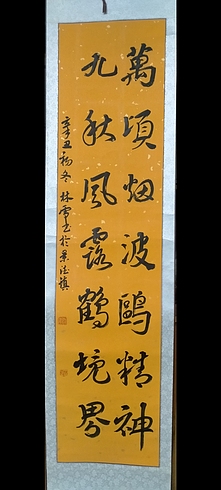 萬頃烟波鷗精神
九秋風露鶴境界
辛丑初冬林雪書於景德鎮